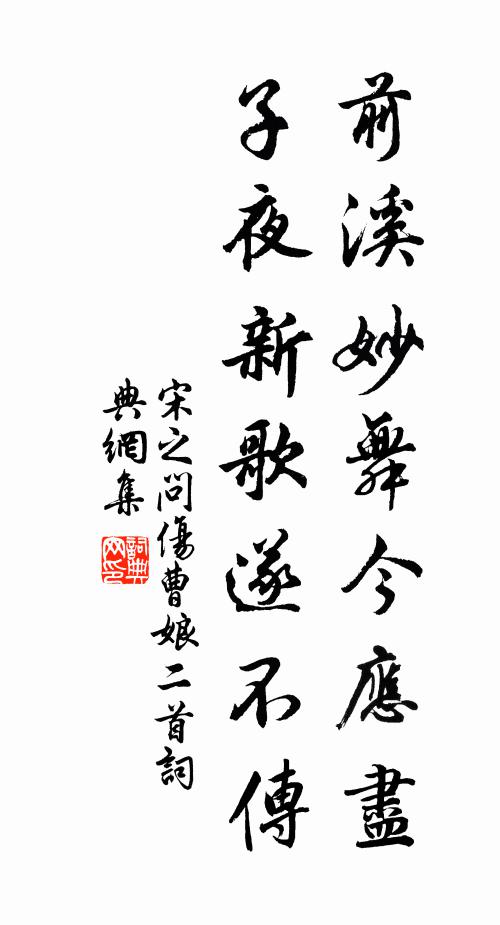 前溪妙舞今應盡
子夜新歌遂不傳
宋之問傷曹娘二首詞
典網集
詞典
网印